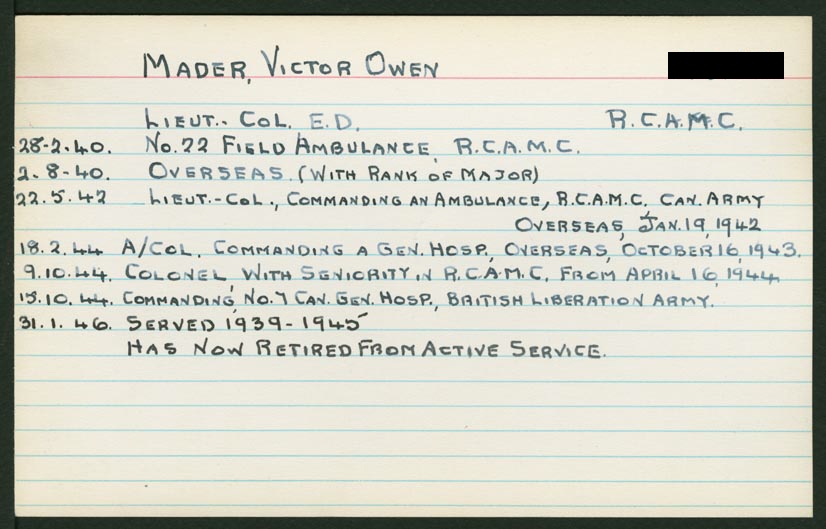 MADER, VICTOR OWEN
LIEUT.- COL. E.D. R.C.A.M.C.
28-2-40. NO. 22 FIELD AMBULANCE, R.C.A.M.C.
2-8-40. OVERSEAS. (WITH RANK OF MAJOR)
22.5.42 LIEUT.-COL., COMMANDING AN AMBULANCE, R.C.A.M.C. CAN. ARMY
OVERSEAS, JAN. 19, 1942
18.2.44 A/COL. COMMANDING A GEN. HOSP., OVERSEAS, OCTOBER 16, 1943.
9.10.44. COLONEL, WITH SENIORITY IN R.C.A.M.C. FROM APRIL 16, 1944.
15.10.44. COMMANDING, NO. 7 CAN. GEN. HOSP., BRITISH LIBERATION ARMY.
31.1.46. SERVED 1939-1945
HAS NOW RETIRED FROM ACTIVE SERVICE.